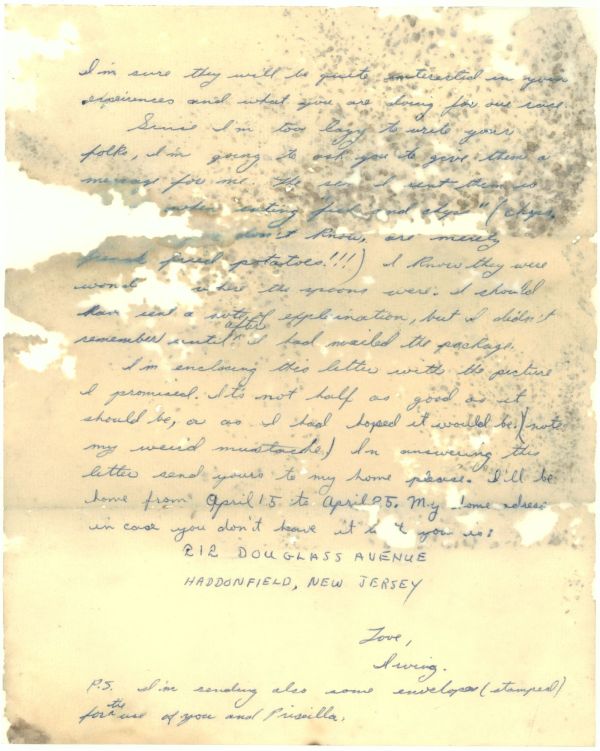 I'm sure they will be quite interested in your
experiences and what you are doing for our race.
Since I'm too lazy to write your
folks, I'm going to ask you to give them a
message for me. The set I sent them is
when eating "fish and chips" (chips,
don't know, are merely
french fried potatoes!!!) I know they were
wond where the spoons were. I should
have sent a note of explaination, but I didn't
remember until after I had mailed the package.
I'm enclosing this letter with the picture
I promised. It's not half as good as it
should be, or as I had hoped it would be. (note
my weird mustache.) In answering this
letter send yours to my home please. I'll be
home from April 15 to April 25. My home adress
in case you don't have it with you is:
212 DOUGLASS AVENUE
HADDONFIELD, NEW JERSEY
Love,
Irving.
P.S. I'm sending also some envelopes (stamped)
for the use of you and Priscilla.